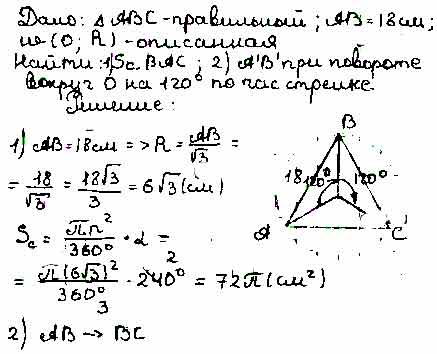 Дано: △ABC - правильный; AB = 18 см;
ω(O; R) - описанная
Найти: 1) Sс. BAC; 2) A'B' при повороте
вокруг O на 120° по час стрелке.
Решение:
1) AB = 18 см => R = AB/√3 =
= 18/√3 = 18√3/3 = 6√3 (см)
Sc = πr²/360° · α =
= π(6√3)²/360° · 240° = 72π (см²)
3 2
2) AB → BC
B
18 120° 120°
A C